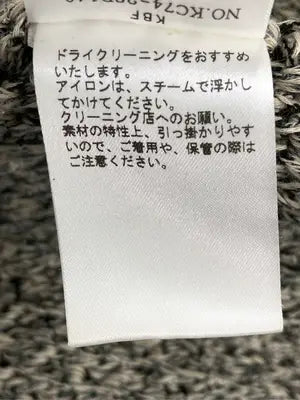 KBF
ドライクリーニングをおすすめ
いたします。
アイロンは、スチームで浮かし
てかけてください。
クリーニング店へのお願い。
素材の特性上、引っ掛かりやす
いので、ご着用や、保管の際は
ご注意ください。